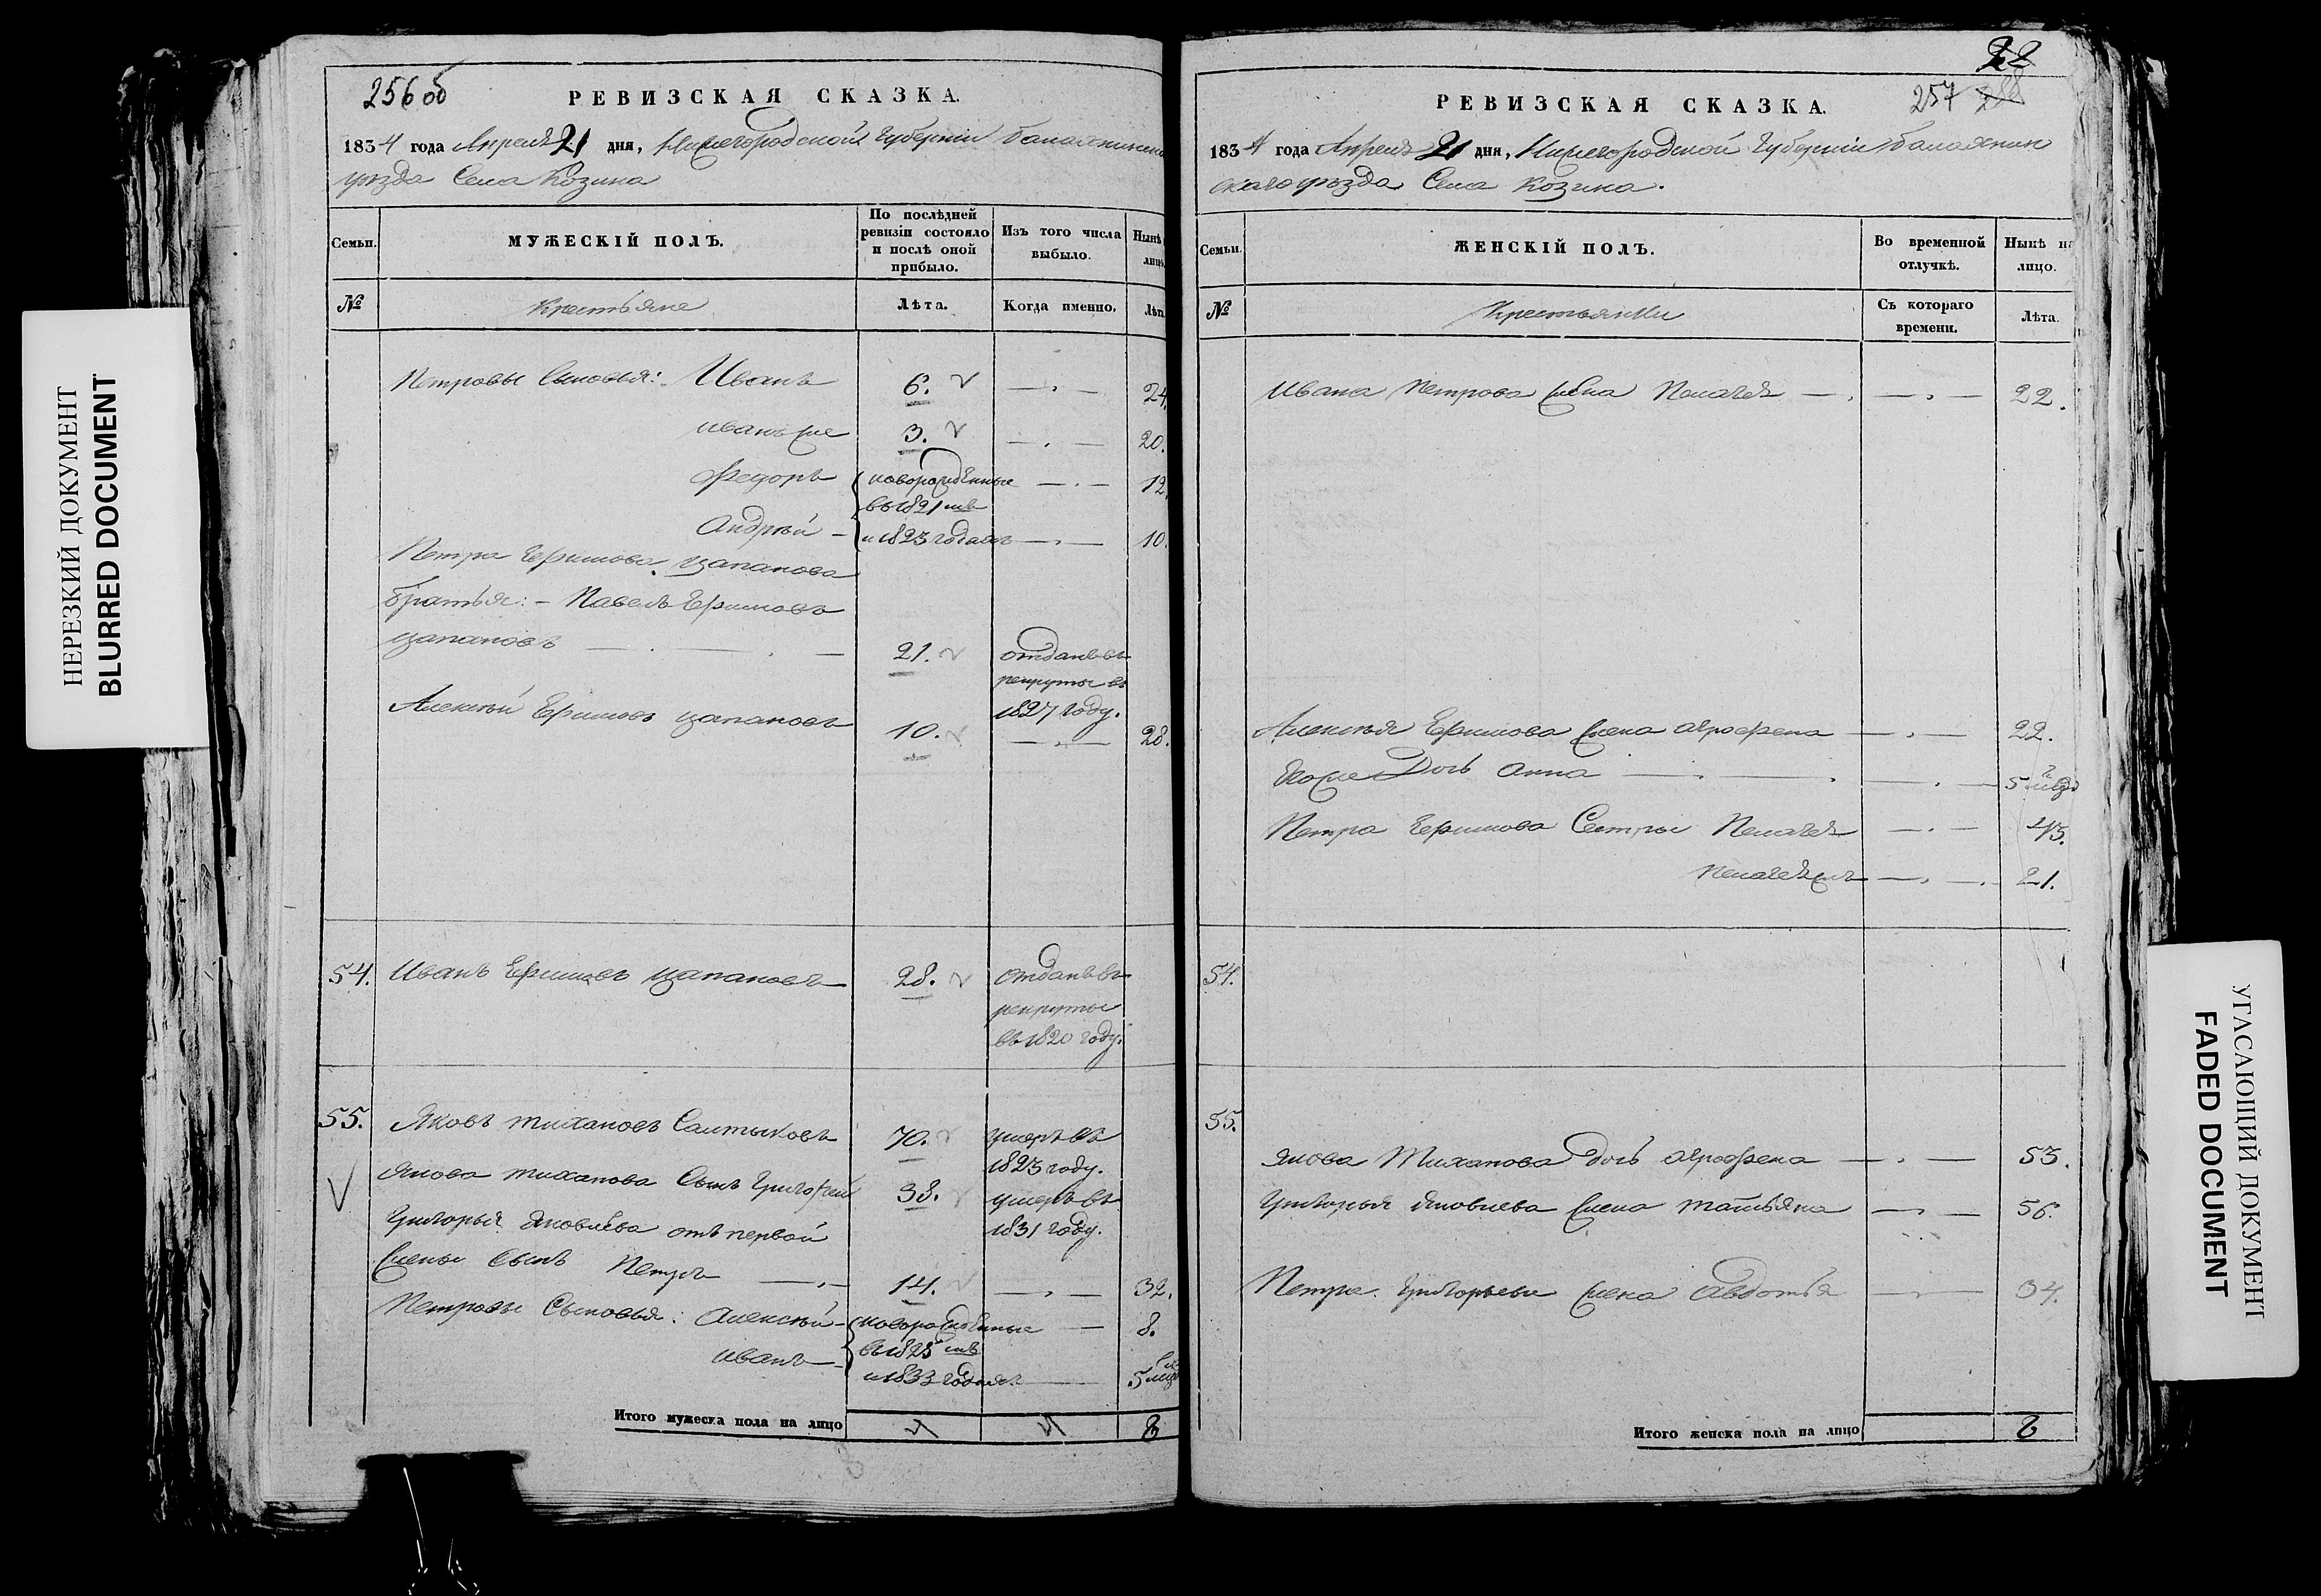 НЕРЕЗКИЙ ДОКУМЕНТ
BLURRED DOCUMENT
256 об
РЕВИЗСКАЯ СКАЗКА.
1834 года Апреля 21 дня, Нижегородской Губернiи Балахнинска
уѣзда Села Козина
Семьи.
МУЖЕСКІЙ ПОЛЪ.
По послѣдней ревизіи состояло и послѣ оной прибыло.
Изъ того числа выбыло.
Нынѣ
лицо
№
Крестьяне
Лѣта.
Когда именно.
Лѣта
Петровы Сыновья: Иванъ 6. 24.
Иванъ же 3. 20.
Федоръ новорожденные 12.
въ 1821 мъ
Андрѣй и 1823 годахъ 10.
Петра Ефимова Цапанова
братья: Павелъ Ефимовъ
Цапановъ 21. отданъ въ
рекруты въ
1827 году.
Алексѣй Ефимовъ Цапановъ 10. 28.
54. Иванъ Ефимовъ Цапановъ 28. отданъ въ
рекруты
въ 1820 году.
55. Яковъ Тихановъ Салтыковъ 70. умеръ въ
1823 году.
Якова Тиханова Сынъ Григорей 38. умеръ въ
1831 году.
Григорья Яковлева отъ первой
жены Сынъ Петръ 14. 32.
Петровы Сыновья: Алексѣй новорожденные 8.
въ 1825 мъ
Иванъ и 1833 годахъ 5
Итого мужеска пола на лицо 8
22
257
РЕВИЗСКАЯ СКАЗКА.
1834 года Апреля 21 дня, Нижегородской Губернiи Балахнин
скаго уѣзда Села Козина.
Семьи.
ЖЕНСКІЙ ПОЛЪ.
Во временной отлучкѣ.
Нынѣ на лицо.
№
Крестьянки
Съ котораго времени.
Лѣта.
Ивана Петрова жена Пелагея 22.
Алексѣя Ефимова жена Аграфена 22.
Его же Дочь Анна 5
Петра Ефимова Сестры Пелагея 45.
Пелагея жъ 21.
54.
55.
Якова Тиханова дочь Аграфена 53.
Григорья Яковлева жена Татьяна 56.
Петра Григорьева жена Авдотья 34.
Итого женска пола на лицо 8
УГАСАЮЩИЙ ДОКУМЕНТ
FADED DOCUMENT